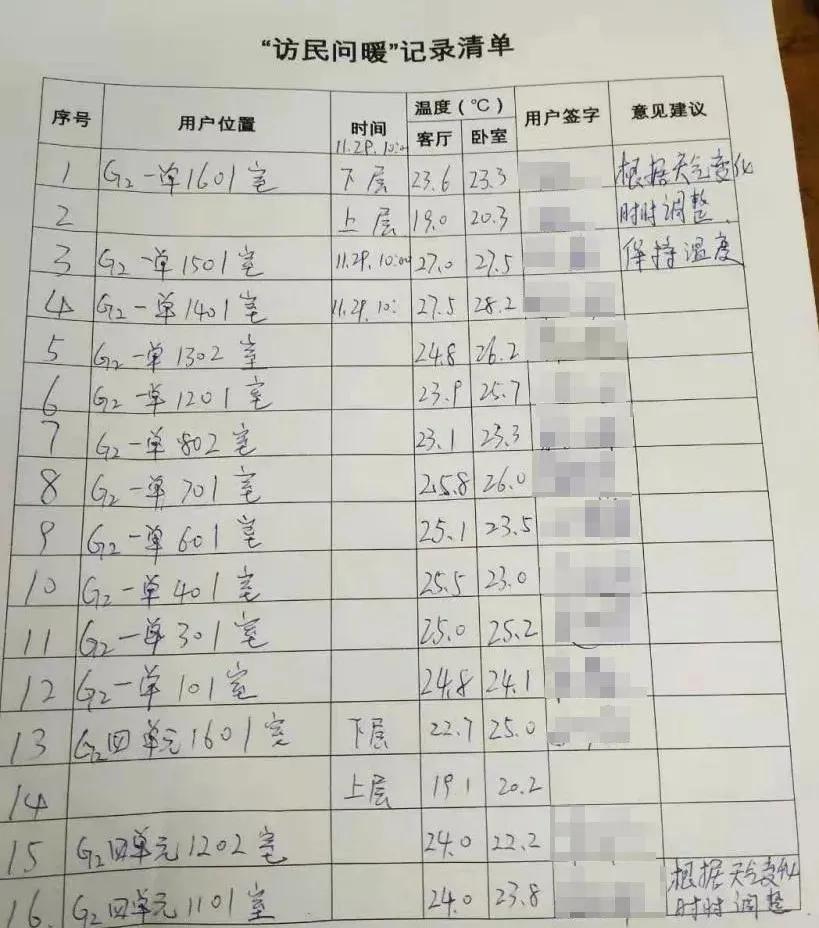 “访民问暖”记录清单
序号 用户位置 时间 温度（℃） 用户签字 意见建议
11.29. 10:00 客厅 卧室
1 G2一单1601室 下层 23.6 23.3 根据天气变化
2 上层 19.0 20.3 时时调整.
3 G2一单1501室 11.29. 10:00 27.0 27.5 保持温度
4 G2一单1401室 11.29. 10: 27.5 28.2
5 G2一单1302室 24.8 26.2
6 G2一单1201室 23.9 25.7
7 G2一单802室 23.1 23.3
8 G2一单701室 25.8 26.0
9 G2一单601室 25.1 23.5
10 G2一单401室 25.5 23.0
11 G2一单301室 25.0 25.2
12 G2一单101室 24.8 24.1
13 G2四单元1601室 下层 22.7 25.0
14 上层 19.1 20.2
15 G2四单元1202室 24.0 22.2
16. G2四单元1101室 24.0 23.8 根据天气变化
时时调整